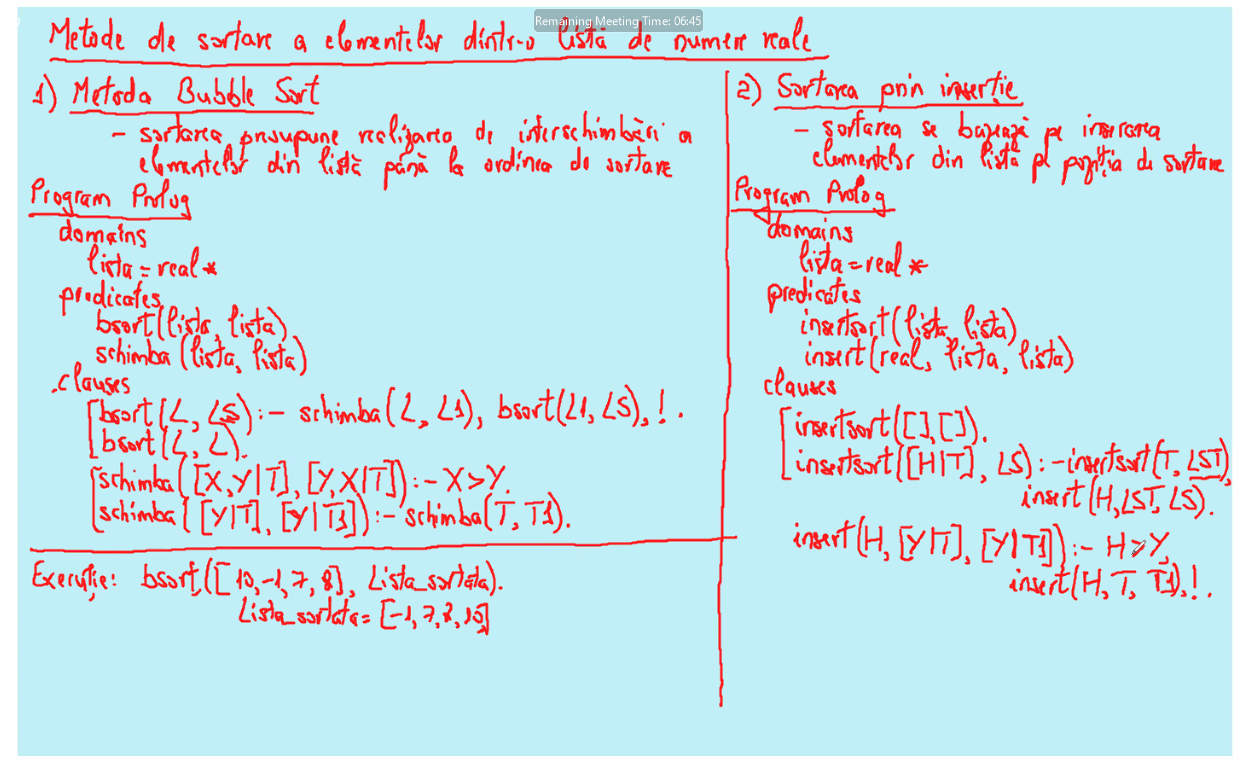 Remaining Meeting Time: 06:45
Metode de sortare a elementelor dintr-o listă de numere reale
1) Metoda Bubble Sort
- sortarea presupune realizarea de interschimbări a
elementelor din listă până la ordinea de sortare
Program Prolog
domains
lista = real *
predicates
bsort(lista, lista)
schimba (lista, lista)
clauses
bsort(L, LS) :- schimba(L, L1), bsort(L1, LS), !.
bsort(L, L).
schimba([X,Y|T], [Y,X|T]) :- X>Y.
schimba([Y|T], [Y|T1]) :- schimba(T, T1).
Execuție: bsort([10,-1,7,8], Lista_sortata).
Lista_sortata = [-1,7,8,10]
2) Sortarea prin inserție
- sortarea se bazează pe inserarea
elementelor din listă pe poziția de sortare
Program Prolog
domains
lista = real *
predicates
insertsort(lista, lista)
insert(real, lista, lista)
clauses
insertsort([],[]).
insertsort([H|T], LS) :- insertsort(T, LST),
insert(H, LST, LS).
insert(H, [Y|T], [Y|T1]) :- H>Y,
insert(H, T, T1), !.